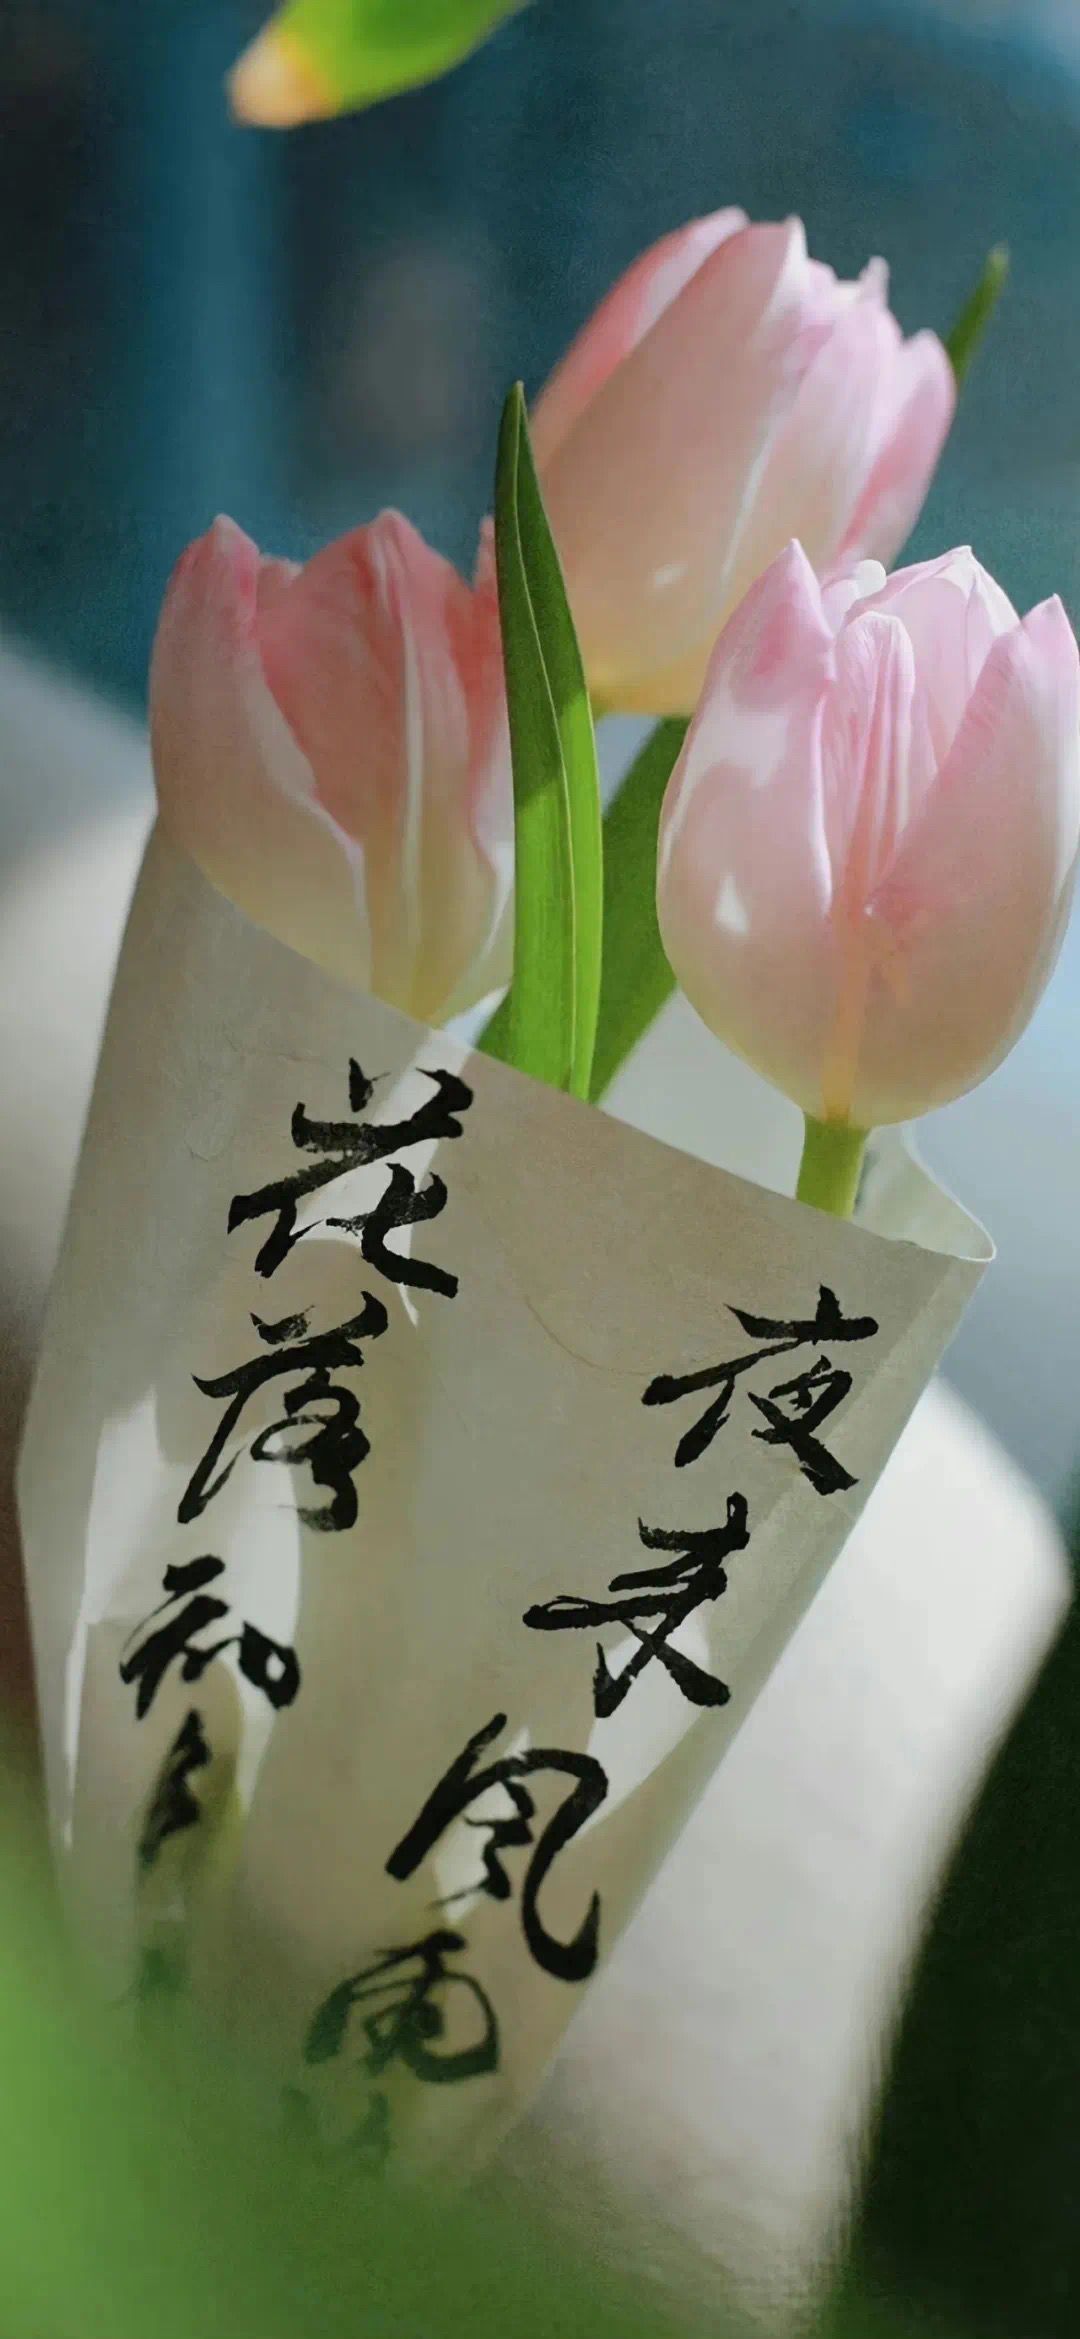 夜来风雨
花落知多